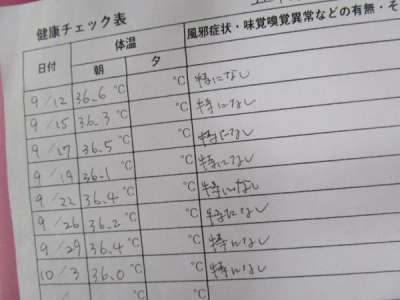 健康チェック表
日付 体温 風邪症状・味覚嗅覚異常などの有無・そ
朝 夕
9/12 36.6 ℃ ℃ 特になし
9/15 36.3 ℃ ℃ 特になし
9/17 36.5 ℃ ℃ 特になし
9/19 36.1 ℃ ℃ 特になし
9/22 36.4 ℃ ℃ 特になし
9/26 36.2 ℃ ℃ 特になし
9/29 36.4 ℃ ℃ 特になし
10/3 36.0 ℃ ℃ 特になし